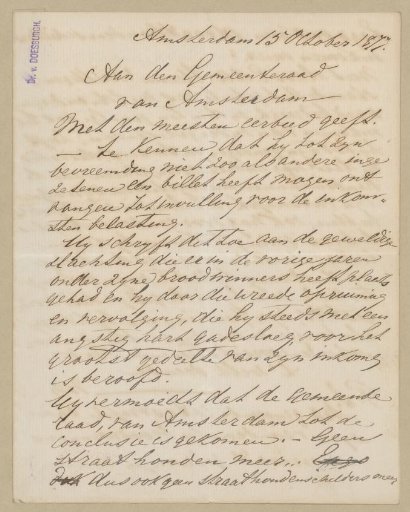 Dr. v. DOESBURGH.
Amsterdam 15 October 1877.
Aan den Gemeenteraad
van Amsterdam
Met den meesten eerbied geeft
— te kennen dat hy tot zyn
bevreemding niet zoo als andere inge
zetenen een billet heeft mogen ont
vangen tot invulling voor de inkom-
sten belasting.
Hy schryft dit toe aan de geweldige
slachting die er in de vorige jaren
onder zyne broodwinners heeft plaats
gehad en hy door die wreede opruiming
en vervolging, die hy steeds met een
angstig hart gadesloeg, voor het
grootst gedeelte van zyn inkomen
is beroofd.
Hy vermoedt dat de Gemeente
raad, van Amsterdam tot de
conclusie is gekomen. — Geen
straathonden meer...
dus ook geen straathondenschilders meer